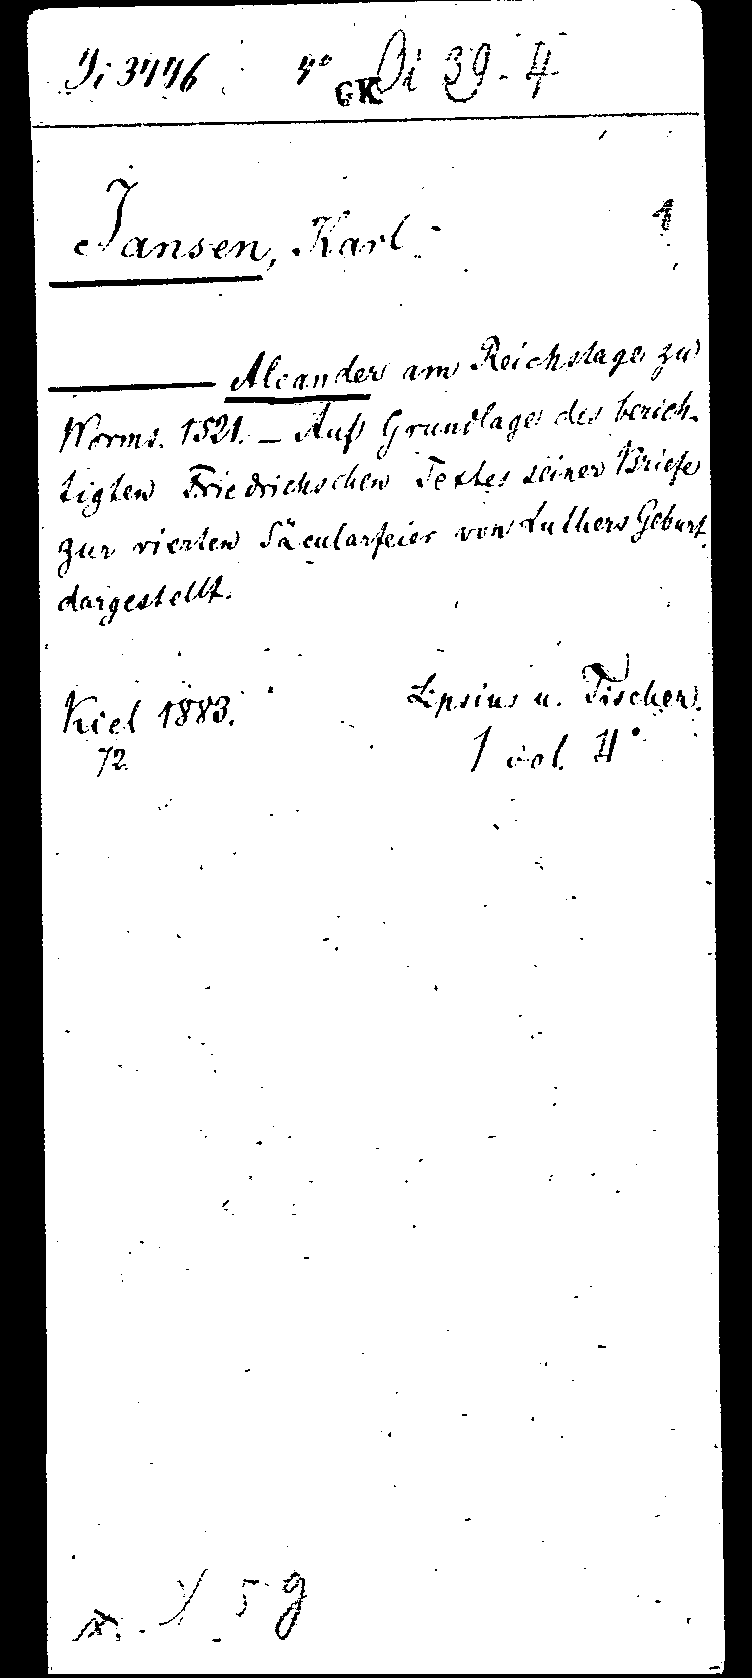 Di 3776 4° GK Di 39-4
Jansen, Karl. 1
Aleander am Reichstage zu
Worms. 1521. – Auf Grundlage des berich-
tigten Friedrichschen Textes seiner Briefe
zur vierten Säcularfeier von Luthers Geburt
dargestellt.
Kiel 1883. Lipsius u. Tischer.
72 1 vol. 4°